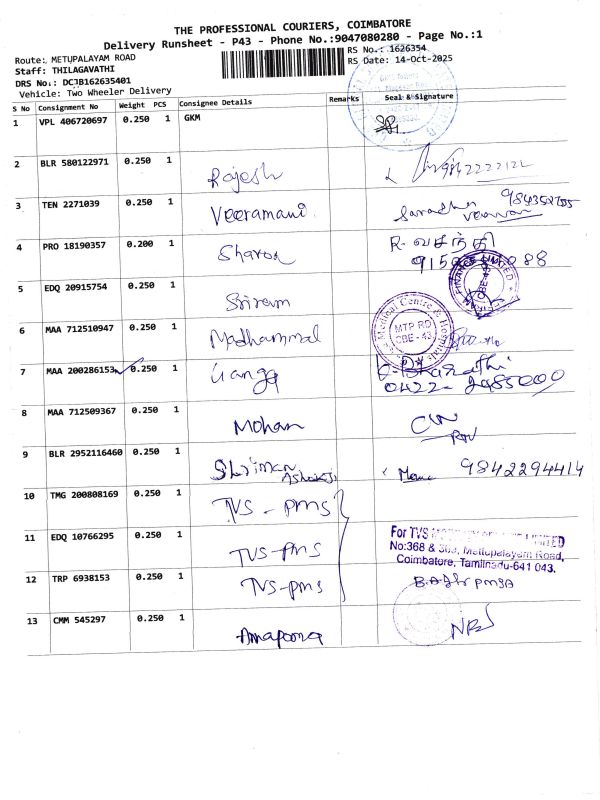 THE PROFESSIONAL COURIERS, COIMBATORE
Delivery Runsheet - P43 - Phone No.:9047080280 - Page No.:1
Route: METUPALAYAM ROAD
RS No.: 1626354
Staff: THILAGAVATHI
RS Date: 14-Oct-2025
DRS No.: DC3B162635401
Vehicle: Two Wheeler Delivery
S No Consignment No Weight PCS Consignee Details Remarks Seal & Signature
1 VPL 406720697 0.250 1 GKM
2 BLR 580122971 0.250 1 Rajesh 9842222122
3 TEN 2271039 0.250 1 Veeramani
4 PRO 18190357 0.200 1 Sharon R. வசந்தி
5 EDQ 20915754 0.250 1 Sriram FINANCE LIMITED CBE-43
6 MAA 712510947 0.250 1 Madhammal Medical Centre & Hospitals MTP RD CBE - 43
7 MAA 200286153 0.250 1 Ganga Bharathi
0422-2985000
8 MAA 712509367 0.250 1 Mohan
9 BLR 2952116460 0.250 1 Shriman 9842294414
10 TMG 200808169 0.250 1 TVS - PMS
11 EDQ 10766295 0.250 1 TVS-PMS For TVS LIMITED
No:368 & 369, Mettupalayam Road,
Coimbatore, Tamilnadu-641 043.
12 TRP 6938153 0.250 1 TVS-PMS
13 CMM 545297 0.250 1 Annapoorna